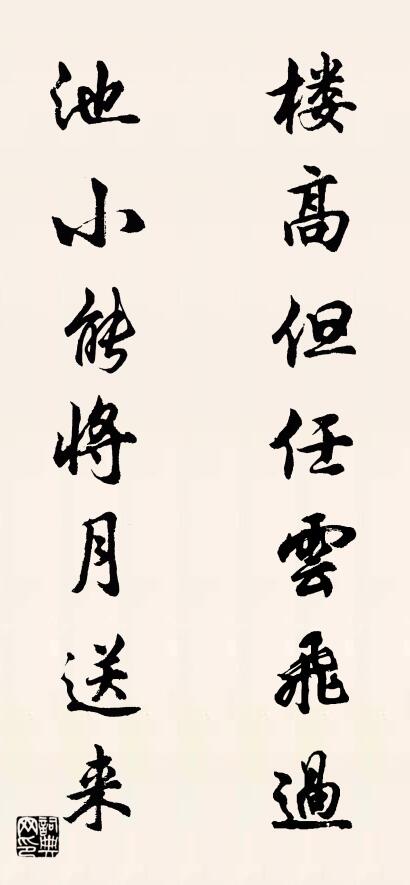 楼高但任雲飛過
池小能将月送来
詞典网印